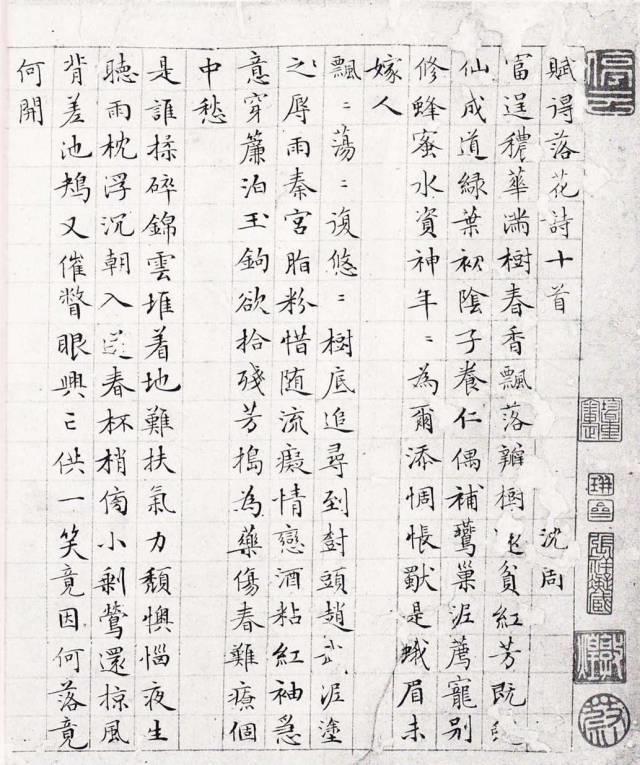 賦得落花詩十首 沈周
富逞穠華滿樹春香飄落瓣樹貧紅芳既
仙成道綠葉初陰子養仁偶補鶯巢泥薦寵別
修蜂蜜水資神年〻為爾添惆悵是蛾眉未
嫁人
飄〻蕩〻復悠〻樹底追尋到樹頭趙武泥塗
之辱雨秦宮脂粉惜隨流癡情戀酒粘紅袖急
意穿簾泊玉鉤欲拾殘芳搗為藥傷春難療個
中愁
是誰揉碎錦雲堆着地難扶氣力頹懊惱夜生
聽雨枕浮沉朝入送春杯梢小剩鶯還掠風
背差池鳩又催瞥眼興亡供一笑竟因何落竟
何開